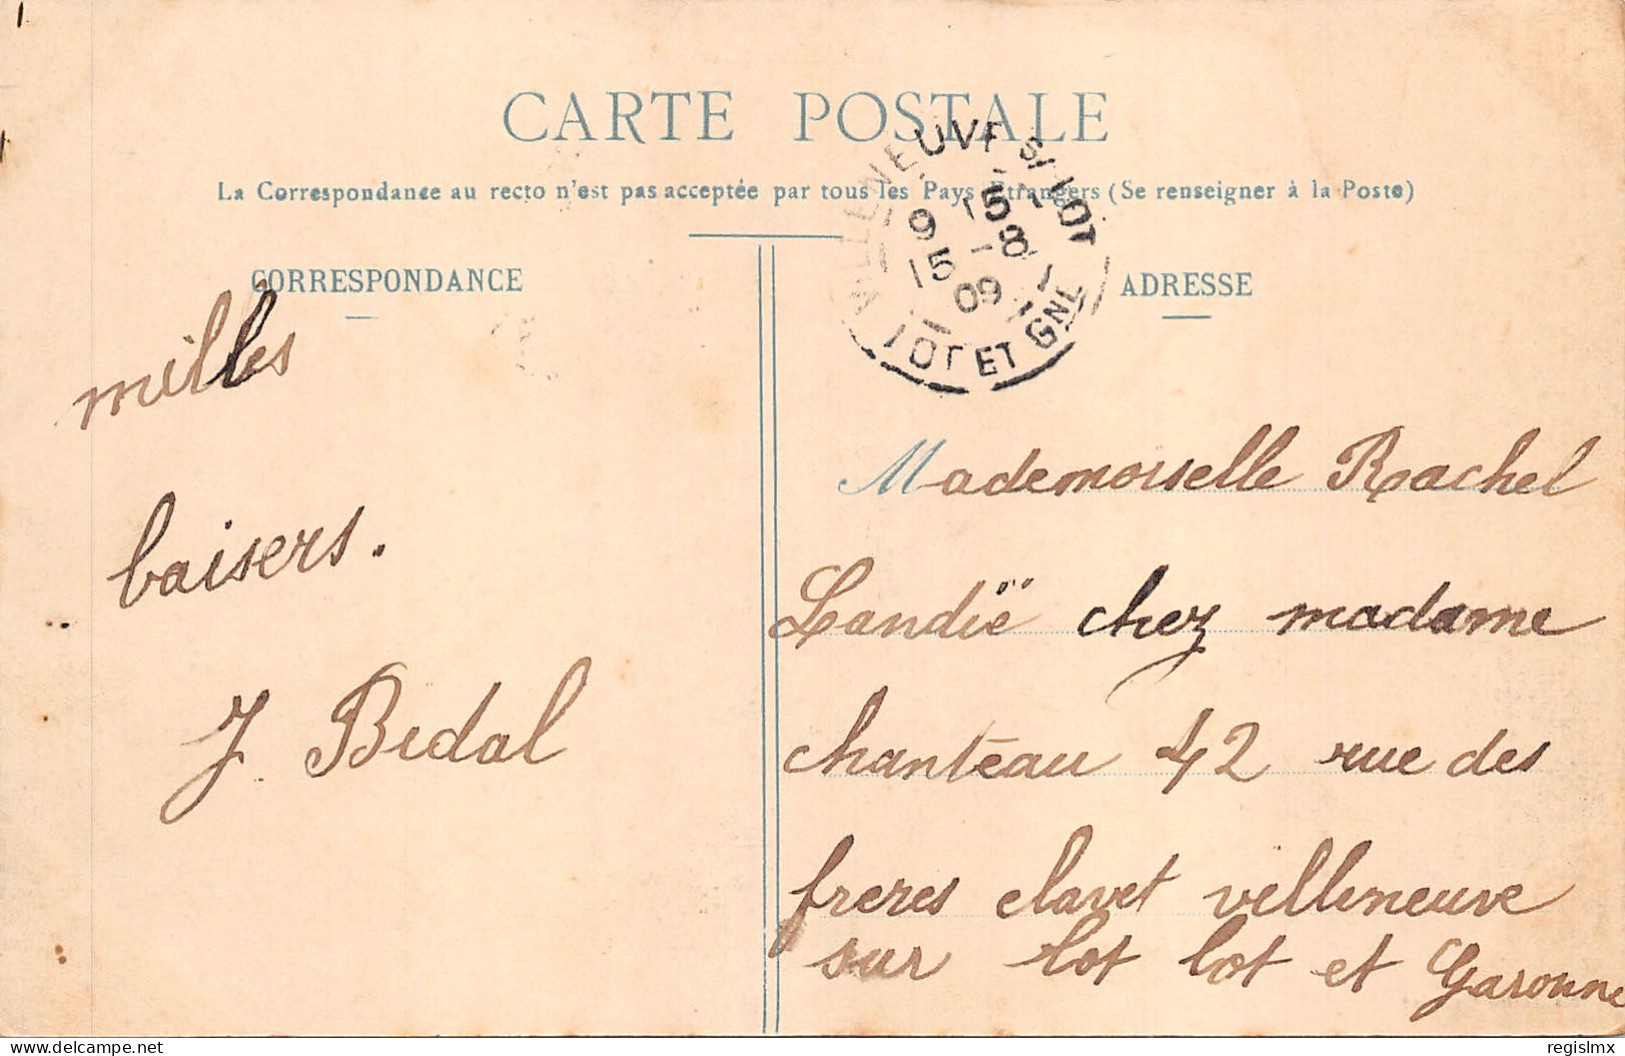 CARTE POSTALE
La Correspondance au recto n'est pas acceptée par tous les Pays Etrangers (Se renseigner à la Poste)
CORRESPONDANCE
milles
baisers.
J. Bidal
VILLENEUVE S/ LOT
9 15
15 8
09
LOT ET GNE
ADRESSE
Mademoiselle Rachel
Landië chez madame
chantéau 42 rue des
freres clavet villeneuve
sur lot lot et Garonne
delcampe.net
regislmx